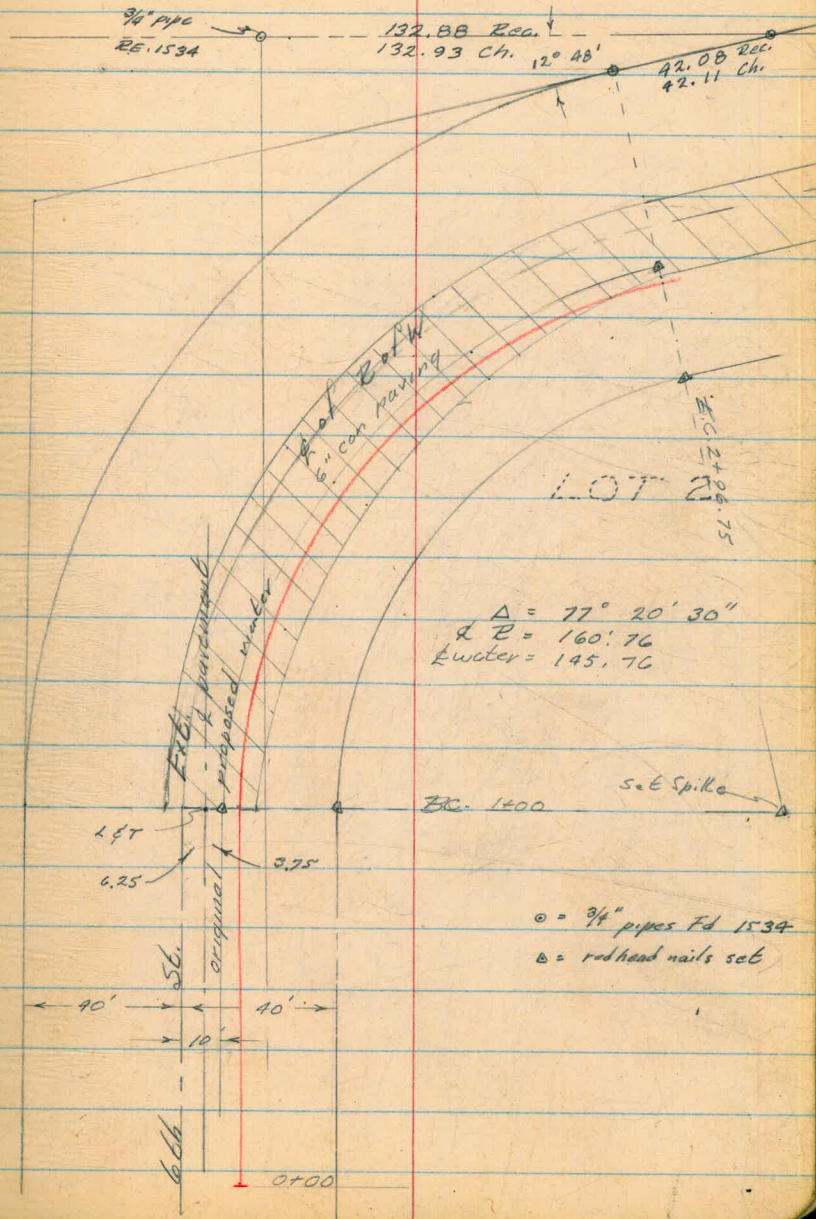 3/4" pipe
R.E. 1534
132.88 Rec.
132.93 Ch.
12° 48'
42.08 Rec.
42.11 Ch.
℄ of R of W
6" con paving
E.C. 2+96.75
LOT 2
Δ = 77° 20' 30"
℄ R = 160.76
℄ water = 145.76
Ext.
℄ pavement
proposed water
Set Spike
BC. 1+00
L & T
6.25
3.75
original
⊙ = 3/4" pipes Fd 1534
△ = redhead nails set
6th St.
40'
40'
10'
0+00